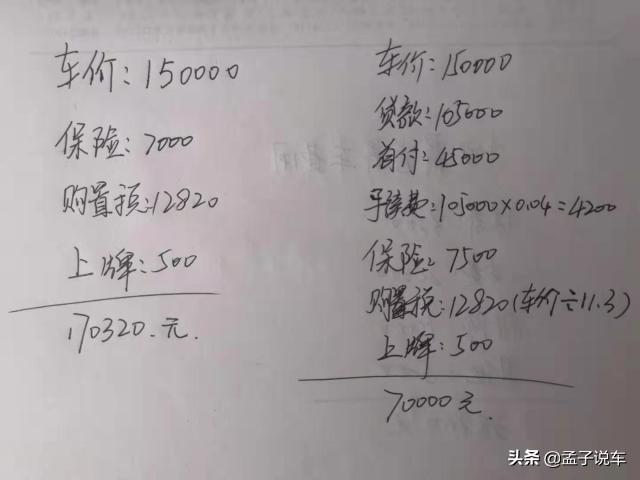 车价:150000
保险:7000
购置税:12820
上牌:500
170320.元.
车价:150000
贷款:105000
首付:45000
手续费:105000×0.04=4200
保险:7500
购置税:12820(车价÷11.3)
上牌:500
70000元.
头条@孟子说车